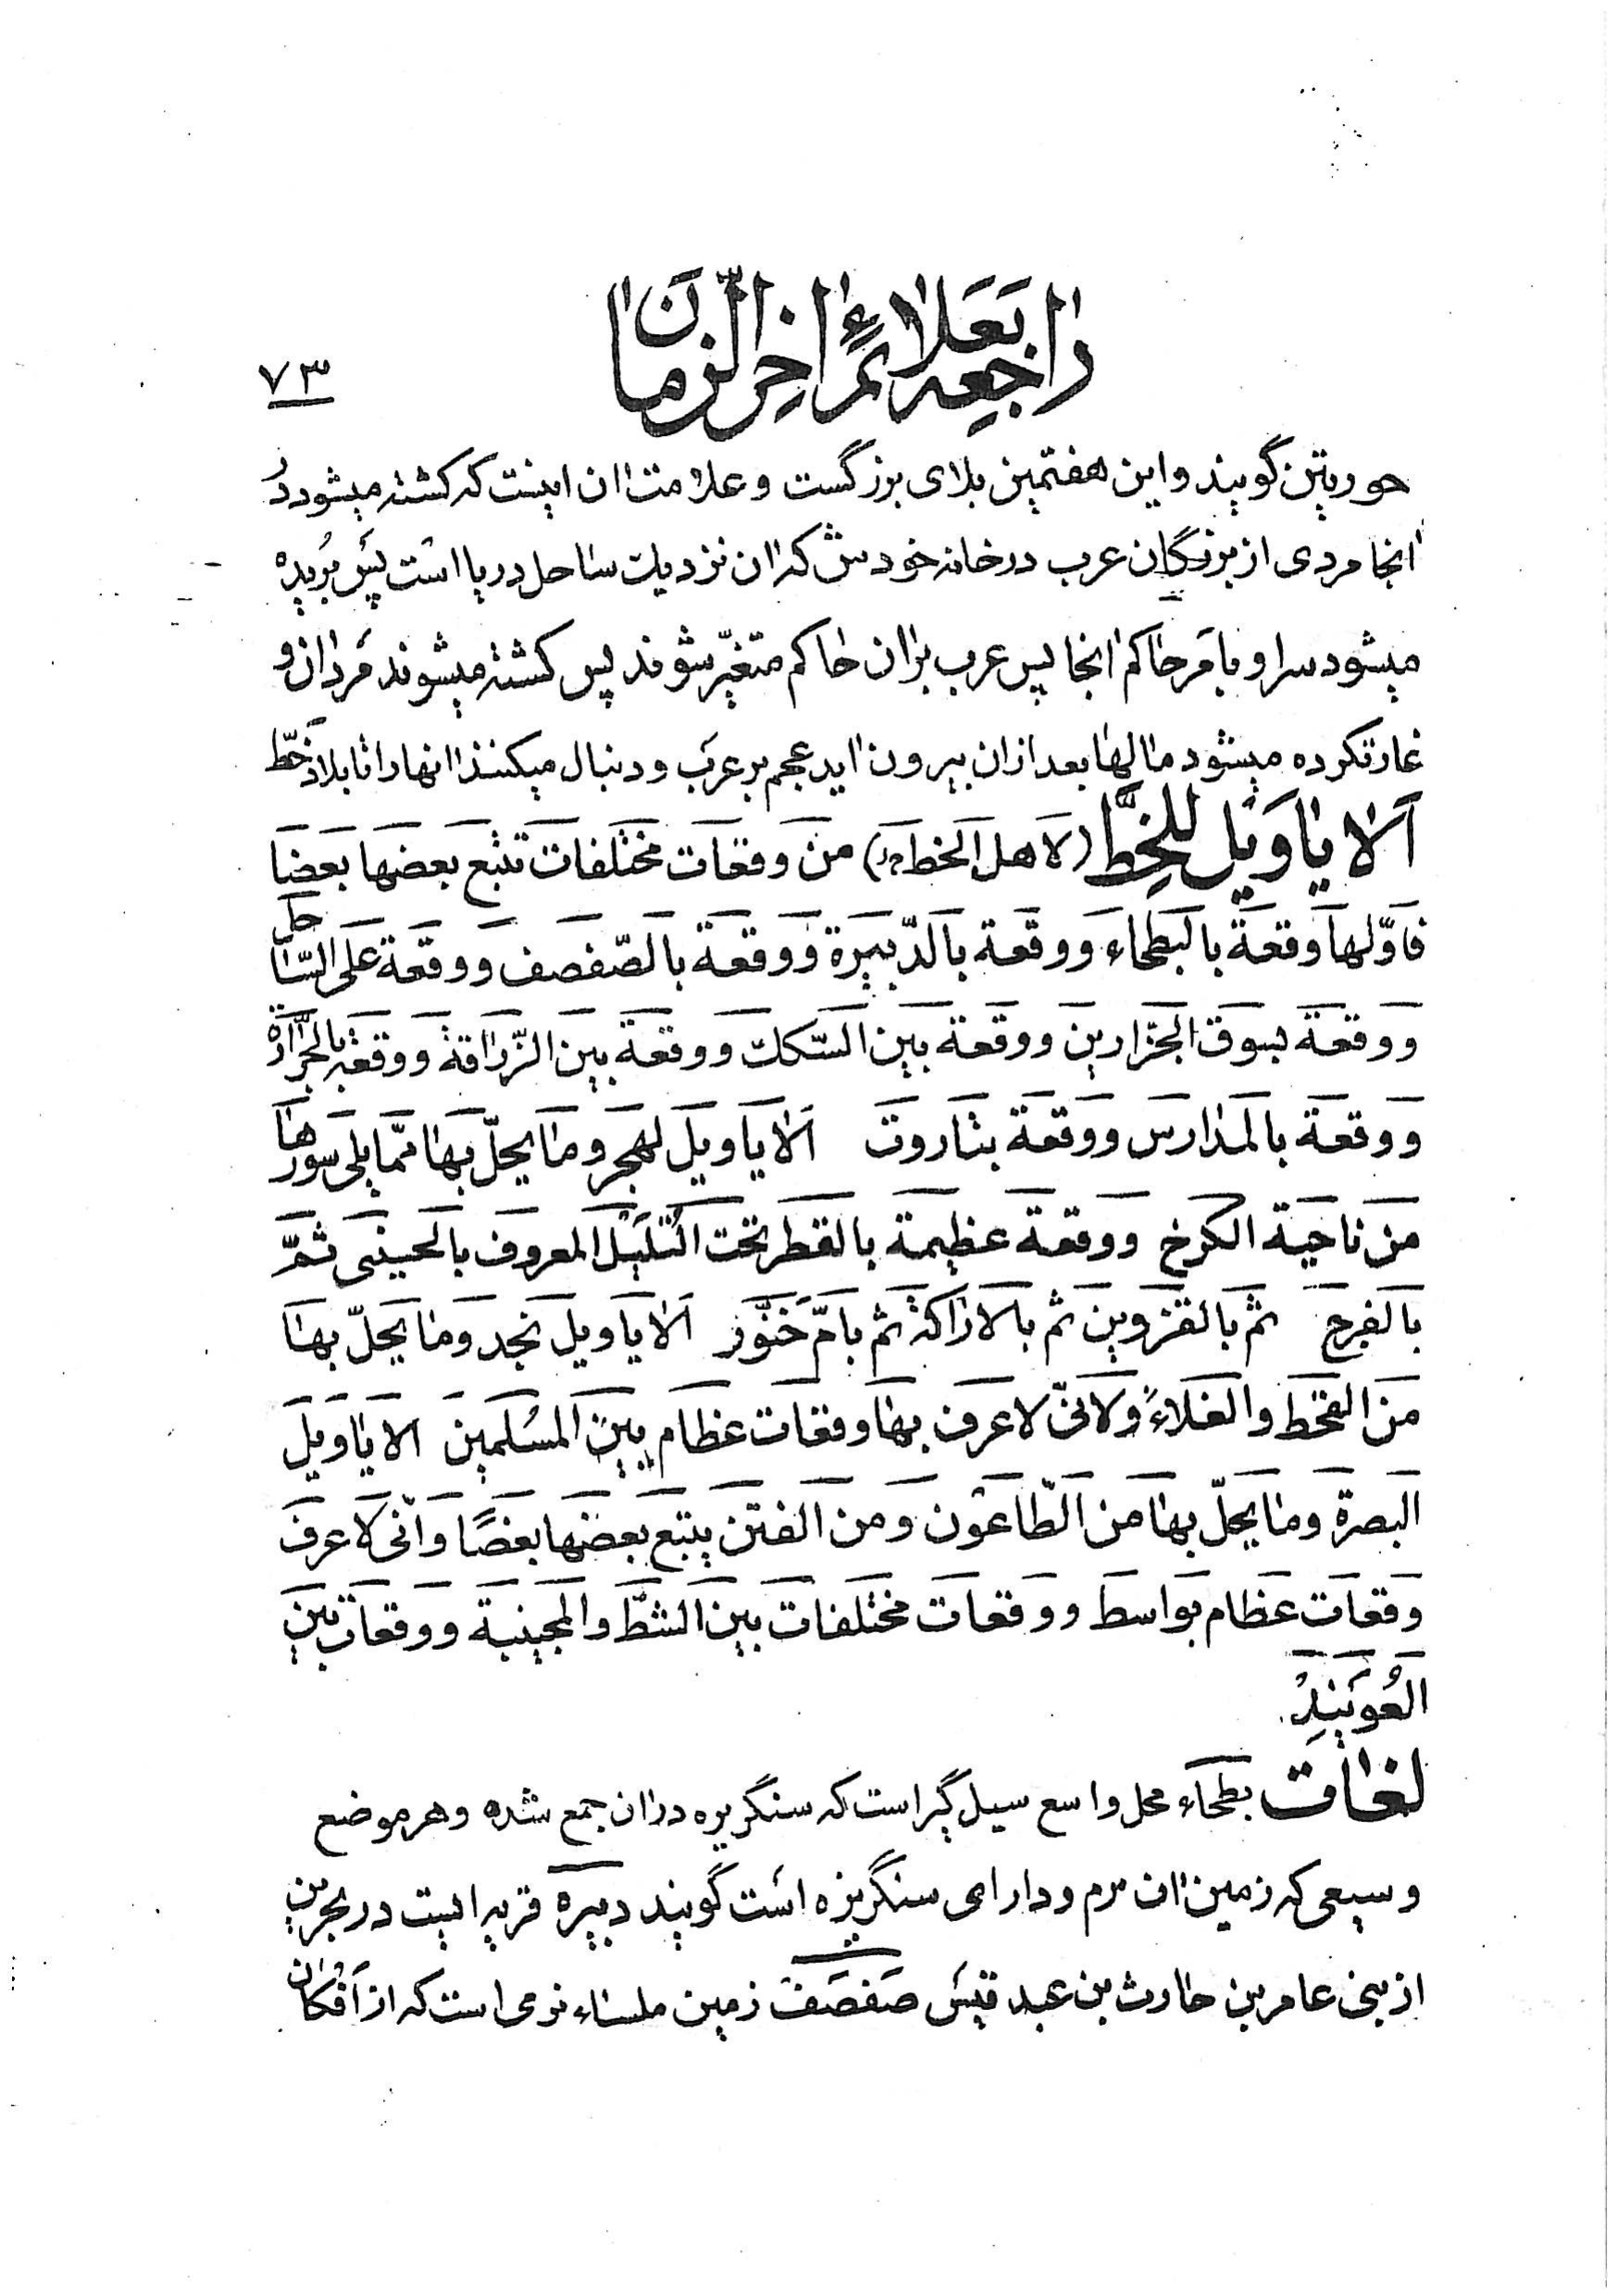 راجعه بعلائم اخر الزمان
۷۳
حوریتن گویند و این هفتمین بلای بزرگست و علامت ان اینست که کشته میشود دُ
انجا مردی از بزرگان عرب در خانه خودش که ان نزدیک ساحل دریا است پس بُریده
میشود سر او بامر حاکم انجا پس عرب بر ان حاکم متغیّر شوند پس کشته میشوند مردان و
غارتکرده میشود مالها بعد از ان بیرون اید عجم بر عرب و دنبال میکنند انها را تا بلاد خطّ
اَلا یا وَیل لِلخَطِّ (لاهل الخط خ) من وقعات مختلفات تتبع بعضها بعضا
فاوّلها وقعة بالبطحاء ووقعة بالدّبیرة ووقعة بالصّفصف ووقعة على السّاحل
ووقعة بسوق الجزّارین ووقعة بین السّکک ووقعة بین الزّراقة ووقعة بالجرّارة
ووقعة بالمدارس ووقعة بتاروت الا یا ویل لهجر وما یحلّ بها ممّا یلی سورها
من ناحیة الکرخ ووقعة عظیمة بالقطر تحت التّلیل المعروف بالحسینی ثمّ
بالفرج ثم بالقزوین ثم بالاراکة ثم بامّ خنّور الا یا ویل نجد وما یحلّ بها
من القحط والغلاء ولانّی لاعرف بها وقعات عظام بین المسلمین الا یا ویل
البصرة وما یحلّ بها من الطّاعون ومن الفتن یتبع بعضها بعضًا وانّی لاعرف
وقعات عظام بواسط ووقعات مختلفات بین الشطّ والمجینبة ووقعات بین
العُوَینِدِ.
لغات بطحاء محل واسع سیل گیر است که سنگریزه در ان جمع شده و هر موضع
وسیعی که زمین ان نرم و دارای سنگریزه است گویند دبیره قریه ایست در بحرین
از بنی عامر بن حارث بن عبد قیس صَفصَف زمین ملساء نرمی است که از اَفکان